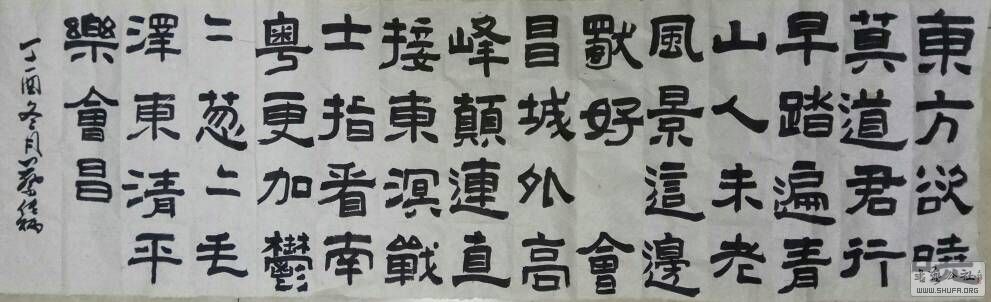 東方欲曉
莫道君行
早踏遍青
山人未老
風景這邊
獨好會
昌城外高
峰顛連直
接東溟戰
士指看南
粵更加鬱
〻葱〻毛
澤東清平
樂會昌
丁酉冬月
WWW.SHUFA.ORG